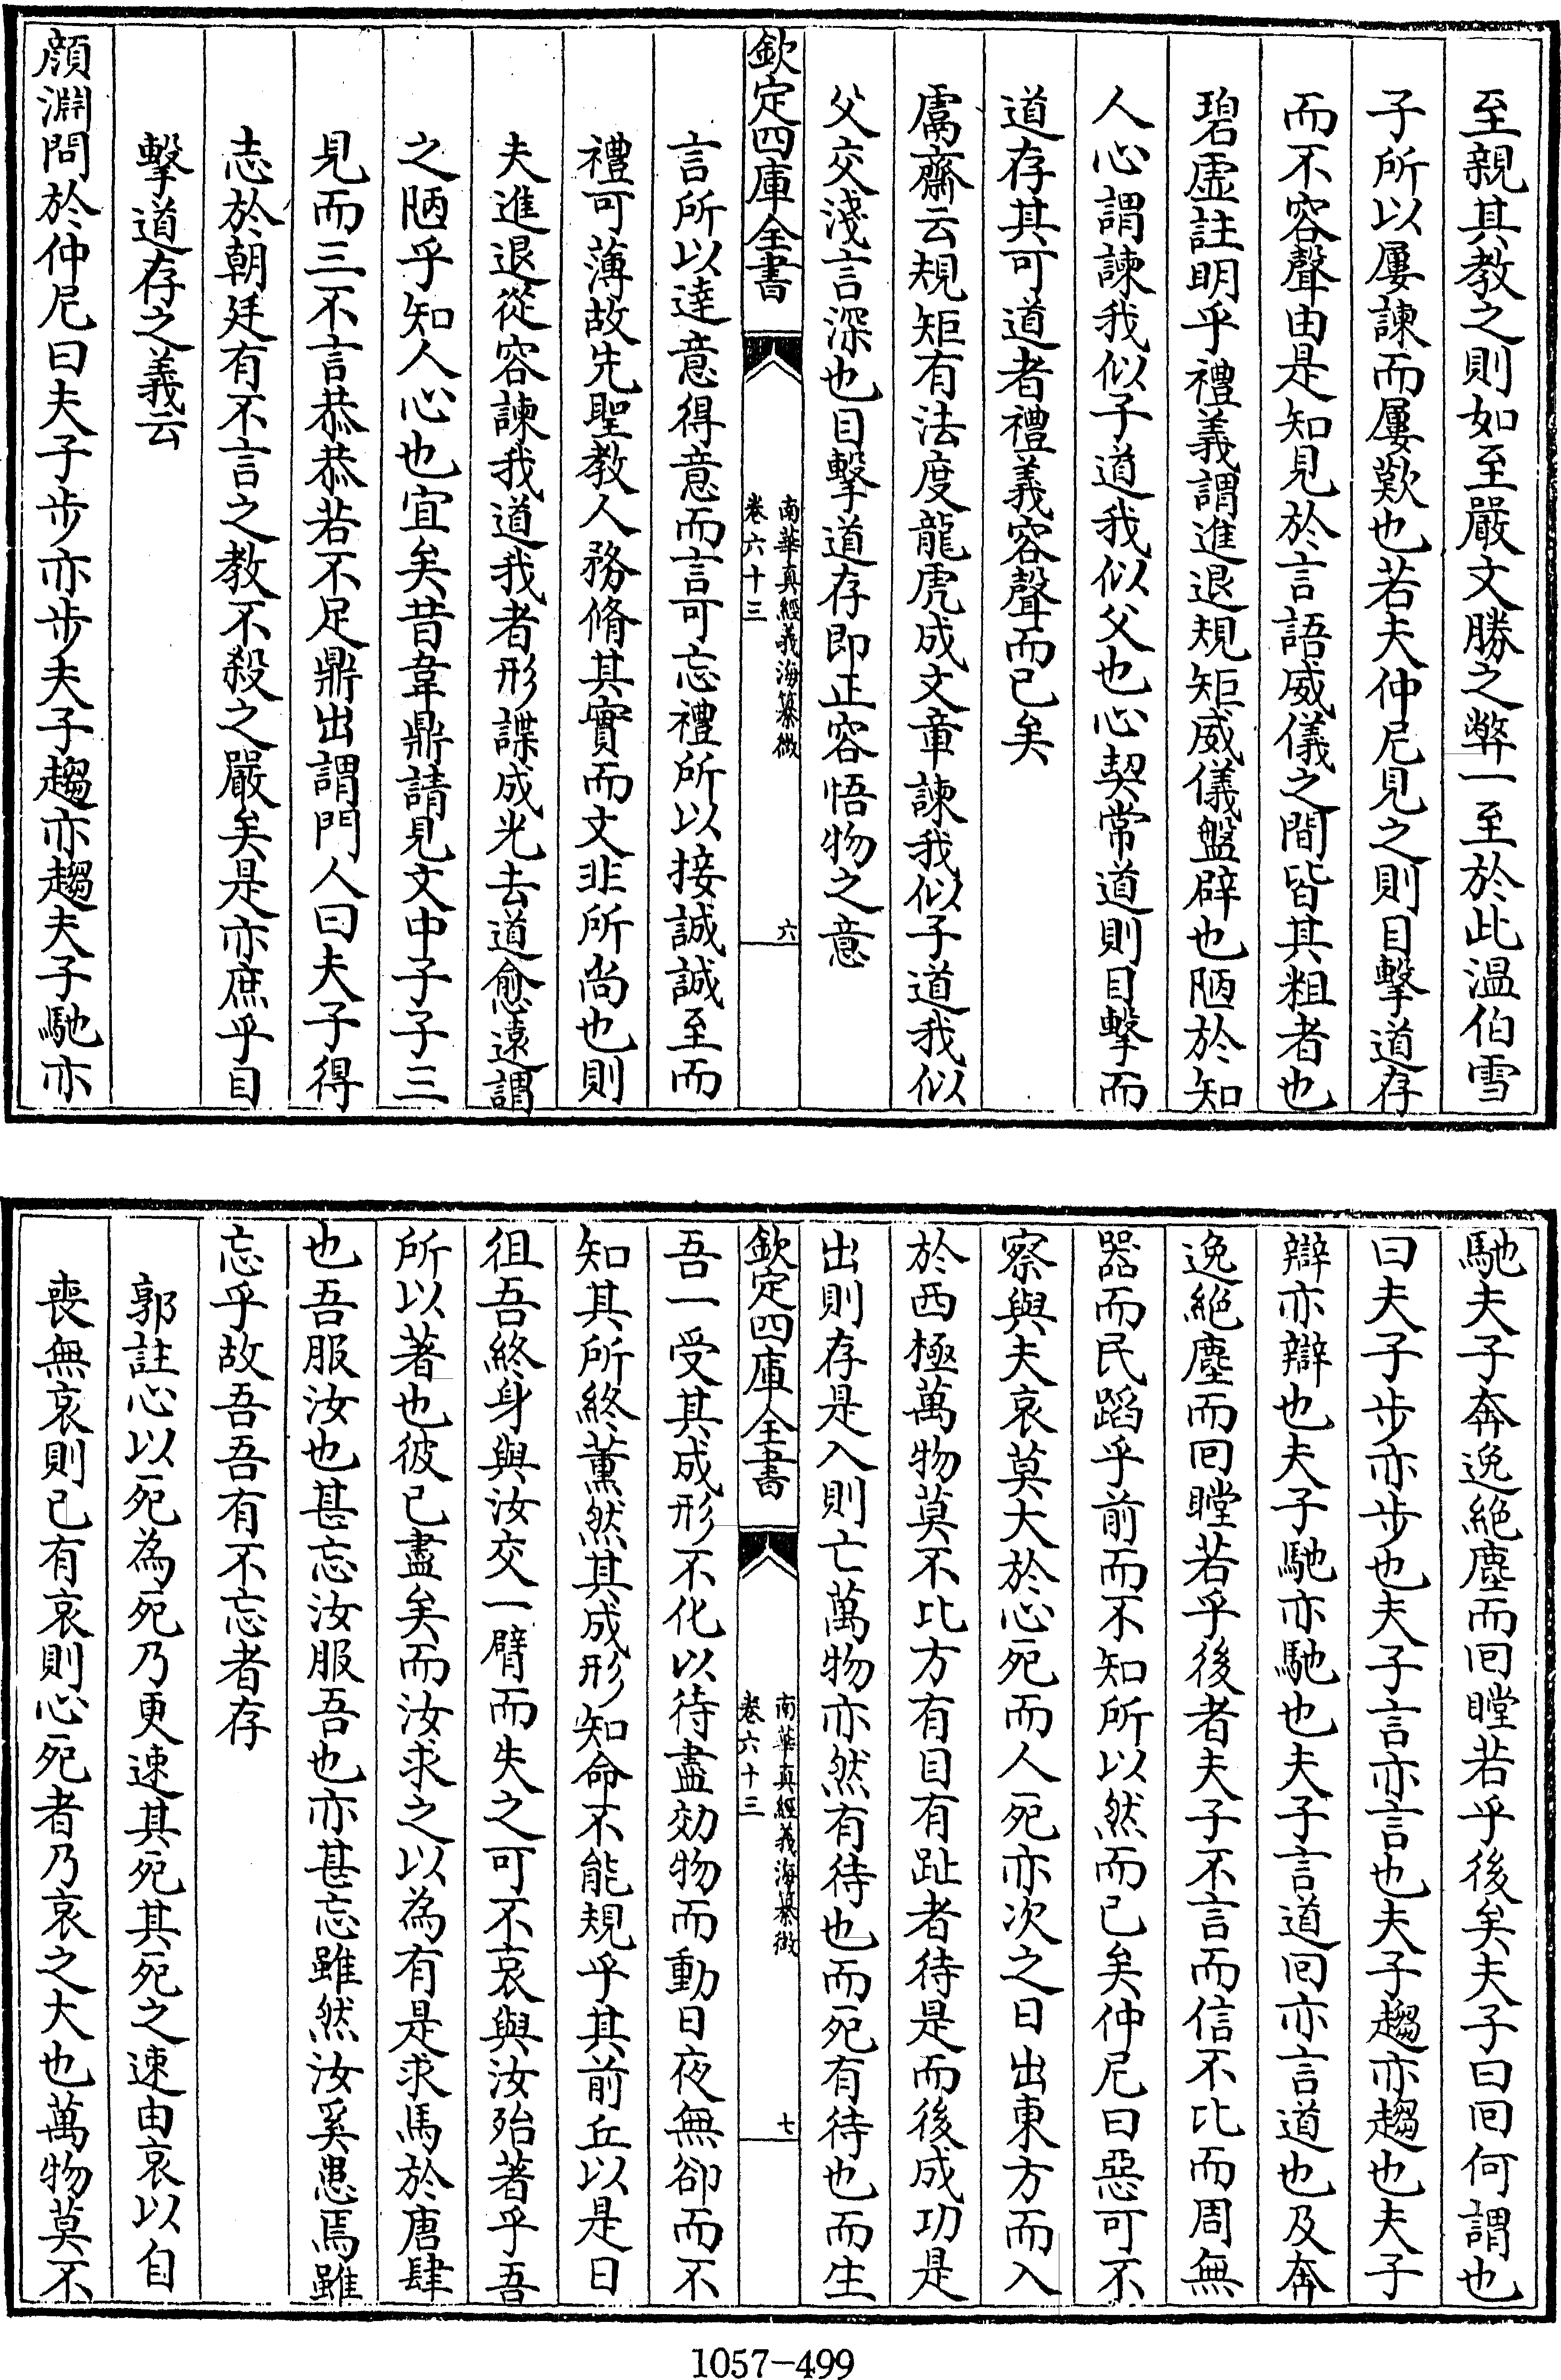 至親其教之則如至嚴文勝之弊一至於此温伯雪
子所以屢諫而屢歎也若夫仲尼見之則目擊道存
而不容聲由是知見於言語威儀之間皆其粗者也
碧虚註明乎禮義謂進退規矩威儀盤辟也陋於知
人心謂諫我似子道我似父也心契常道則目擊而
道存其可道者禮義容聲而已矣
鬳齋云規矩有法度龍虎成文章諫我似子道我似
父交淺言深也目擊道存即正容悟物之意
欽定四庫全書
南華真經義海纂微
卷六十三
六
言所以達意得意而言可忘禮所以接誠誠至而
禮可薄故先聖教人務脩其實而文非所尚也則
夫進退從容諫我道我者形諜成光去道愈遠謂
之陋乎知人心也宜矣昔韋鼎請見文中子子三
見而三不言恭恭若不足鼎出謂門人曰夫子得
志於朝廷有不言之教不殺之嚴矣是亦庶乎目
擊道存之義云
顔淵問於仲尼曰夫子步亦步夫子趨亦趨夫子馳亦
馳夫子奔逸絶塵而囘瞠若乎後矣夫子曰囘何謂也
曰夫子步亦步也夫子言亦言也夫子趨亦趨也夫子
辯亦辯也夫子馳亦馳也夫子言道囘亦言道也及奔
逸絶塵而囘瞠若乎後者夫子不言而信不比而周無
器而民蹈乎前而不知所以然而已矣仲尼曰惡可不
察與夫哀莫大於心死而人死亦次之日出東方而入
於西極萬物莫不比方有目有趾者待是而後成功是
出則存是入則亡萬物亦然有待也而死有待也而生
欽定四庫全書
南華真經義海纂微
卷六十三
七
吾一受其成形不化以待盡効物而動日夜無郤而不
知其所終薰然其成形知命不能規乎其前丘以是日
徂吾終身與汝交一臂而失之可不哀與汝殆著乎吾
所以著也彼已盡矣而汝求之以為有是求馬於唐肆
也吾服汝也甚忘汝服吾也亦甚忘雖然汝奚患焉雖
忘乎故吾吾有不忘者存
郭註心以死為死乃更速其死其死之速由哀以自
喪無哀則已有哀則心死者乃哀之大也萬物莫不
1057-499